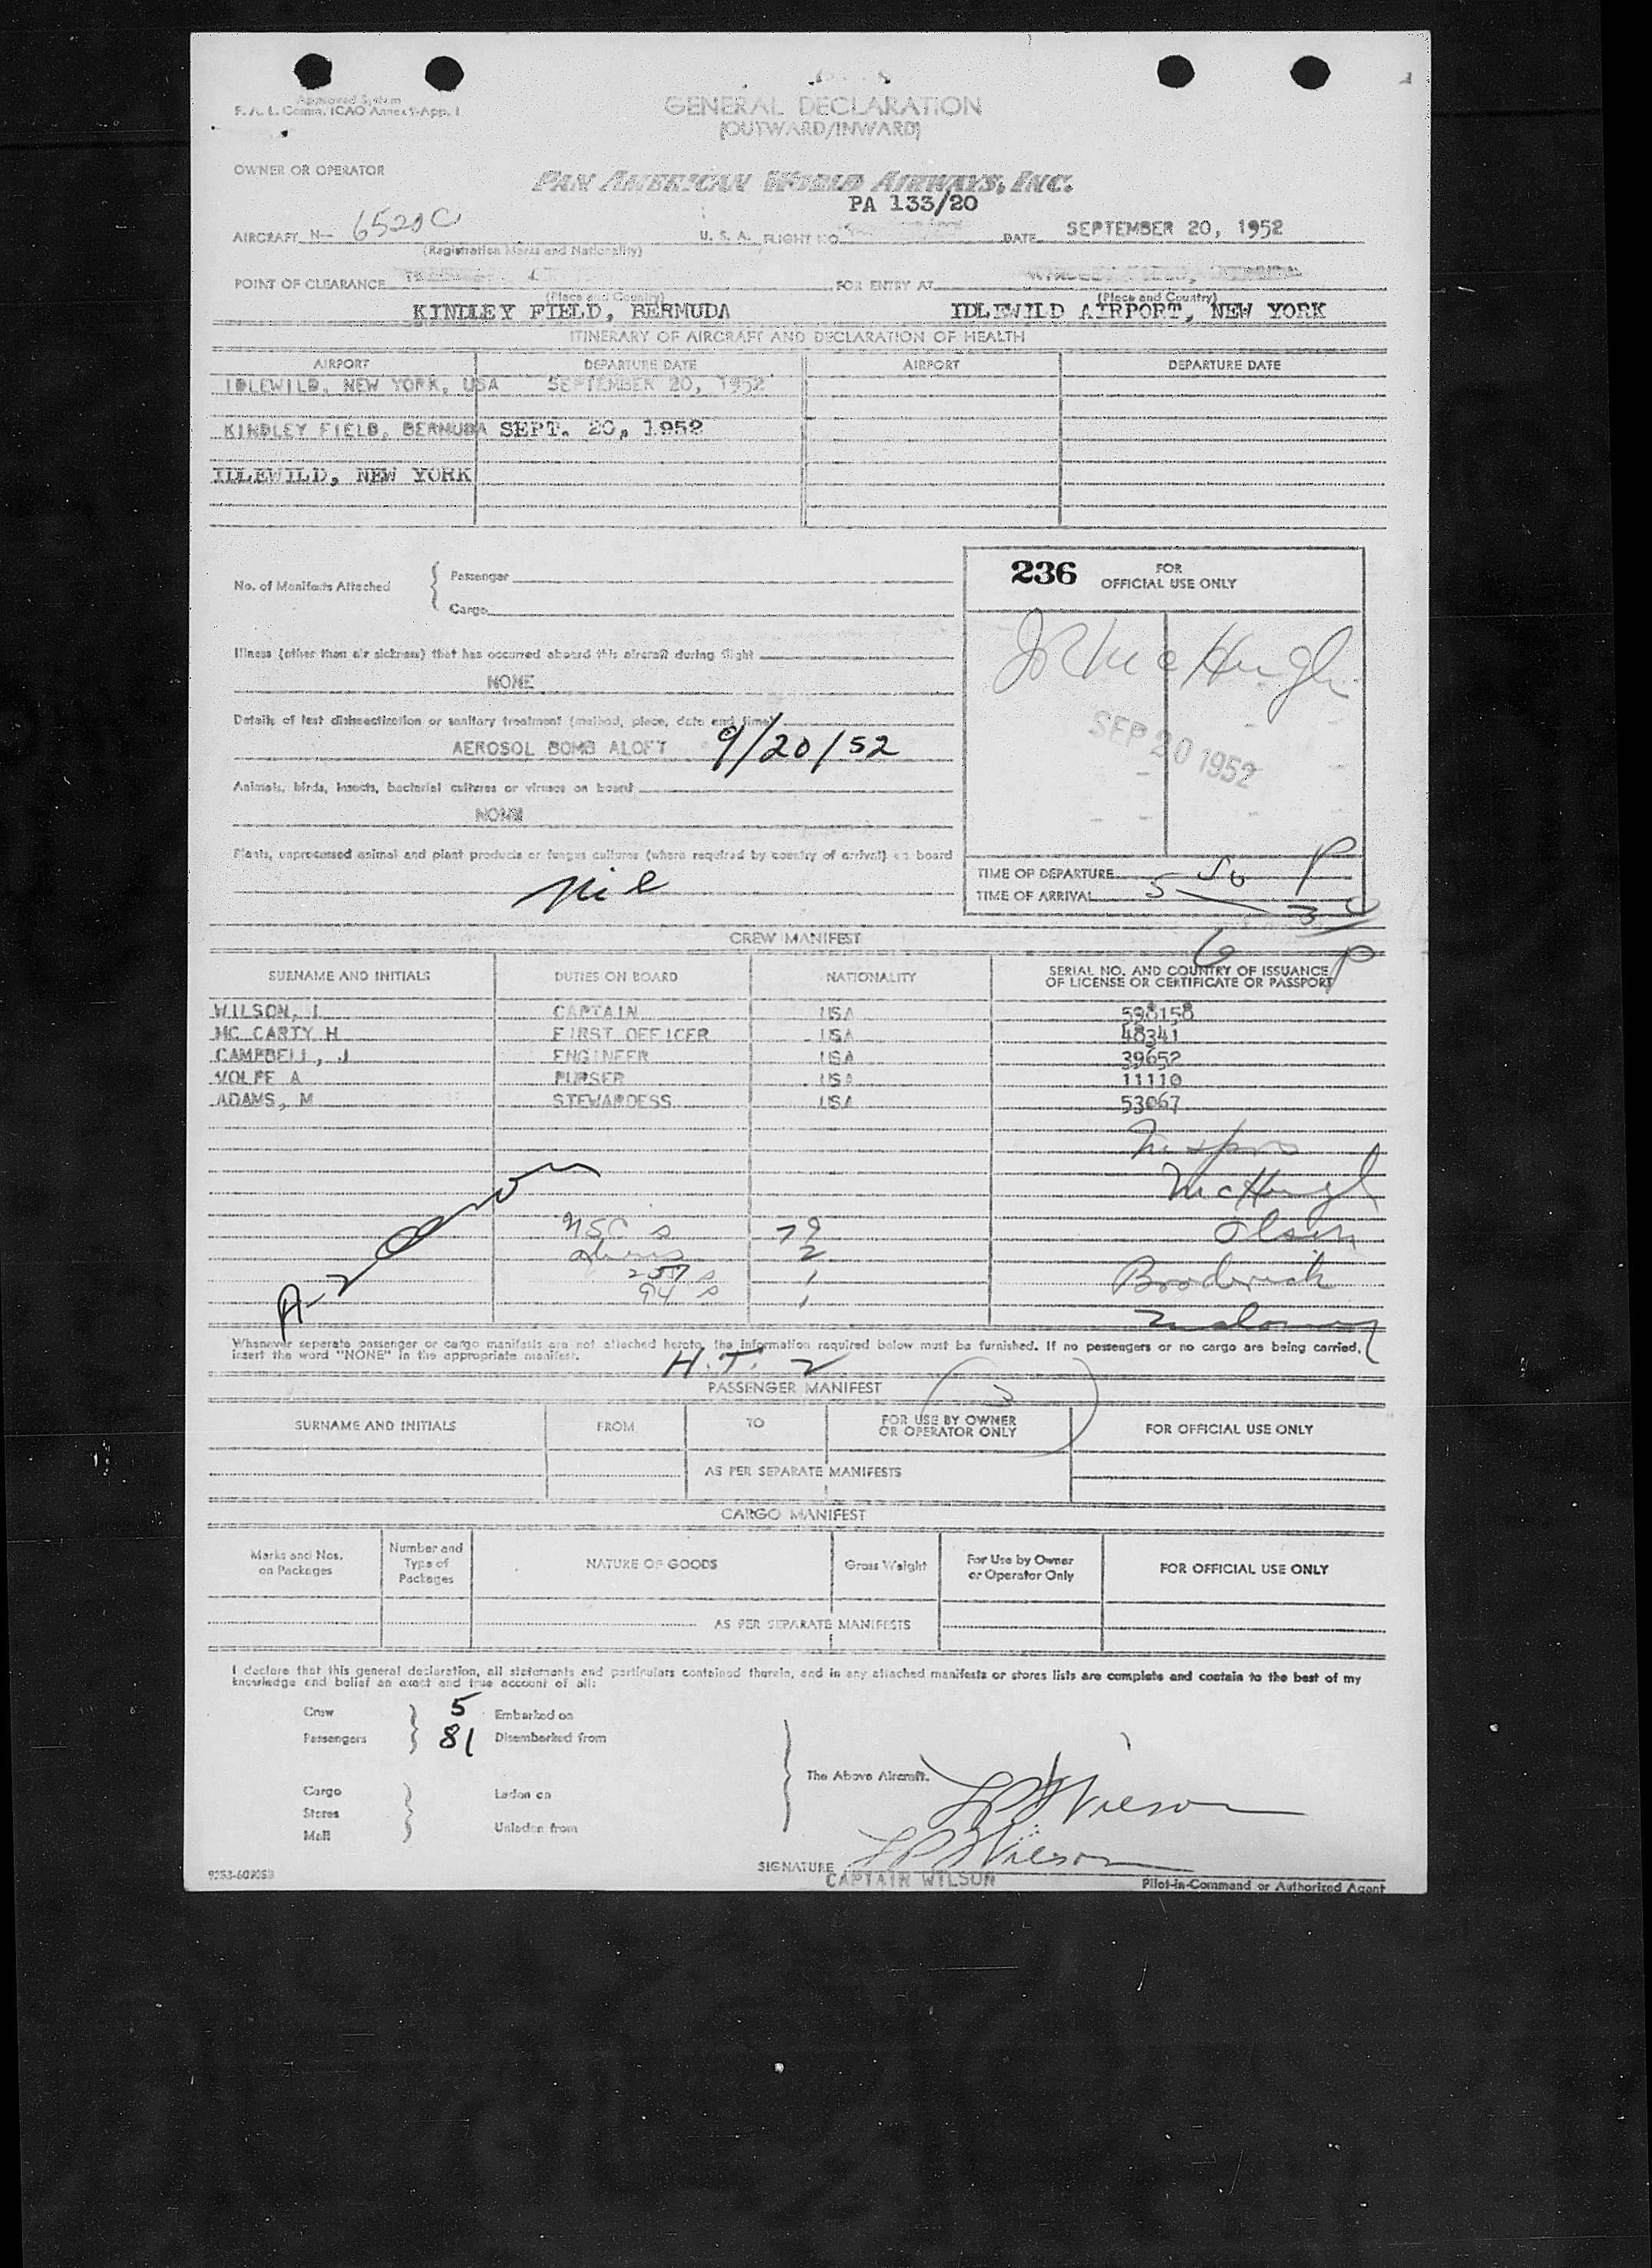 Approved System
F. A. L. Comm. ICAO Annex 9-App. 1
GENERAL DECLARATION
(OUTWARD/INWARD)
OWNER OR OPERATOR
PAN AMERICAN WORLD AIRWAYS, INC.
PA 133/20
AIRCRAFT N- 6520C U. S. A. FLIGHT NO. DATE SEPTEMBER 20, 1952
(Registration Marks and Nationality)
POINT OF CLEARANCE FOR ENTRY AT
(Place and Country) (Place and Country)
KINDLEY FIELD, BERMUDA IDLEWILD AIRPORT, NEW YORK
ITINERARY OF AIRCRAFT AND DECLARATION OF HEALTH
AIRPORT DEPARTURE DATE AIRPORT DEPARTURE DATE
IDLEWILD, NEW YORK, USA SEPTEMBER 20, 1952
KINDLEY FIELD, BERMUDA SEPT. 20, 1952
IDLEWILD, NEW YORK
No. of Manifests Attached { Passenger
Cargo
236 FOR
OFFICIAL USE ONLY
JR McHugh
SEP 20 1952
Illness (other than air sickness) that has occurred aboard this aircraft during flight
NONE
Details of last disinsectization or sanitary treatment (method, place, date and time)
AEROSOL BOMB ALOFT 9/20/52
Animals, birds, insects, bacterial cultures or viruses on board
NONE
Plants, unprocessed animal and plant products or fungus cultures (where required by country of arrival) on board
nil
TIME OF DEPARTURE 5 50 P
TIME OF ARRIVAL
6 30 P
CREW MANIFEST
SURNAME AND INITIALS DUTIES ON BOARD NATIONALITY SERIAL NO. AND COUNTRY OF ISSUANCE
OF LICENSE OR CERTIFICATE OR PASSPORT
WILSON, L CAPTAIN USA 598158
MC CARTY H FIRST OFFICER USA 48341
CAMPBELL, J ENGINEER USA 39652
VOLPE A PURSER USA 11110
ADAMS, M STEWARDESS USA 53067
McHugh
USC s 79 Olsen
2
257 s 1 Broderick
94 s 1 Maloney
Whenever seperate passenger or cargo manifests are not attached hereto, the information required below must be furnished. If no passengers or no cargo are being carried,
insert the word "NONE" in the appropriate manifest.
H.T. 2
PASSENGER MANIFEST
SURNAME AND INITIALS FROM TO FOR USE BY OWNER
OR OPERATOR ONLY FOR OFFICIAL USE ONLY
AS PER SEPARATE MANIFESTS
CARGO MANIFEST
Marks and Nos.
on Packages Number and
Type of
Packages NATURE OF GOODS Gross Weight For Use by Owner
or Operator Only FOR OFFICIAL USE ONLY
AS PER SEPARATE MANIFESTS
I declare that this general declaration, all statements and particulars contained therein, and in any attached manifests or stores lists are complete and contain to the best of my
knowledge and belief an exact and true account of all:
Crew 5 Embarked on
Passengers 81 Disembarked from
The Above Aircraft.
Cargo Laden on
Stores
Mail Unladen from
LP Wilson
SIGNATURE LP Wilson
CAPTAIN WILSON Pilot-in-Command or Authorized Agent